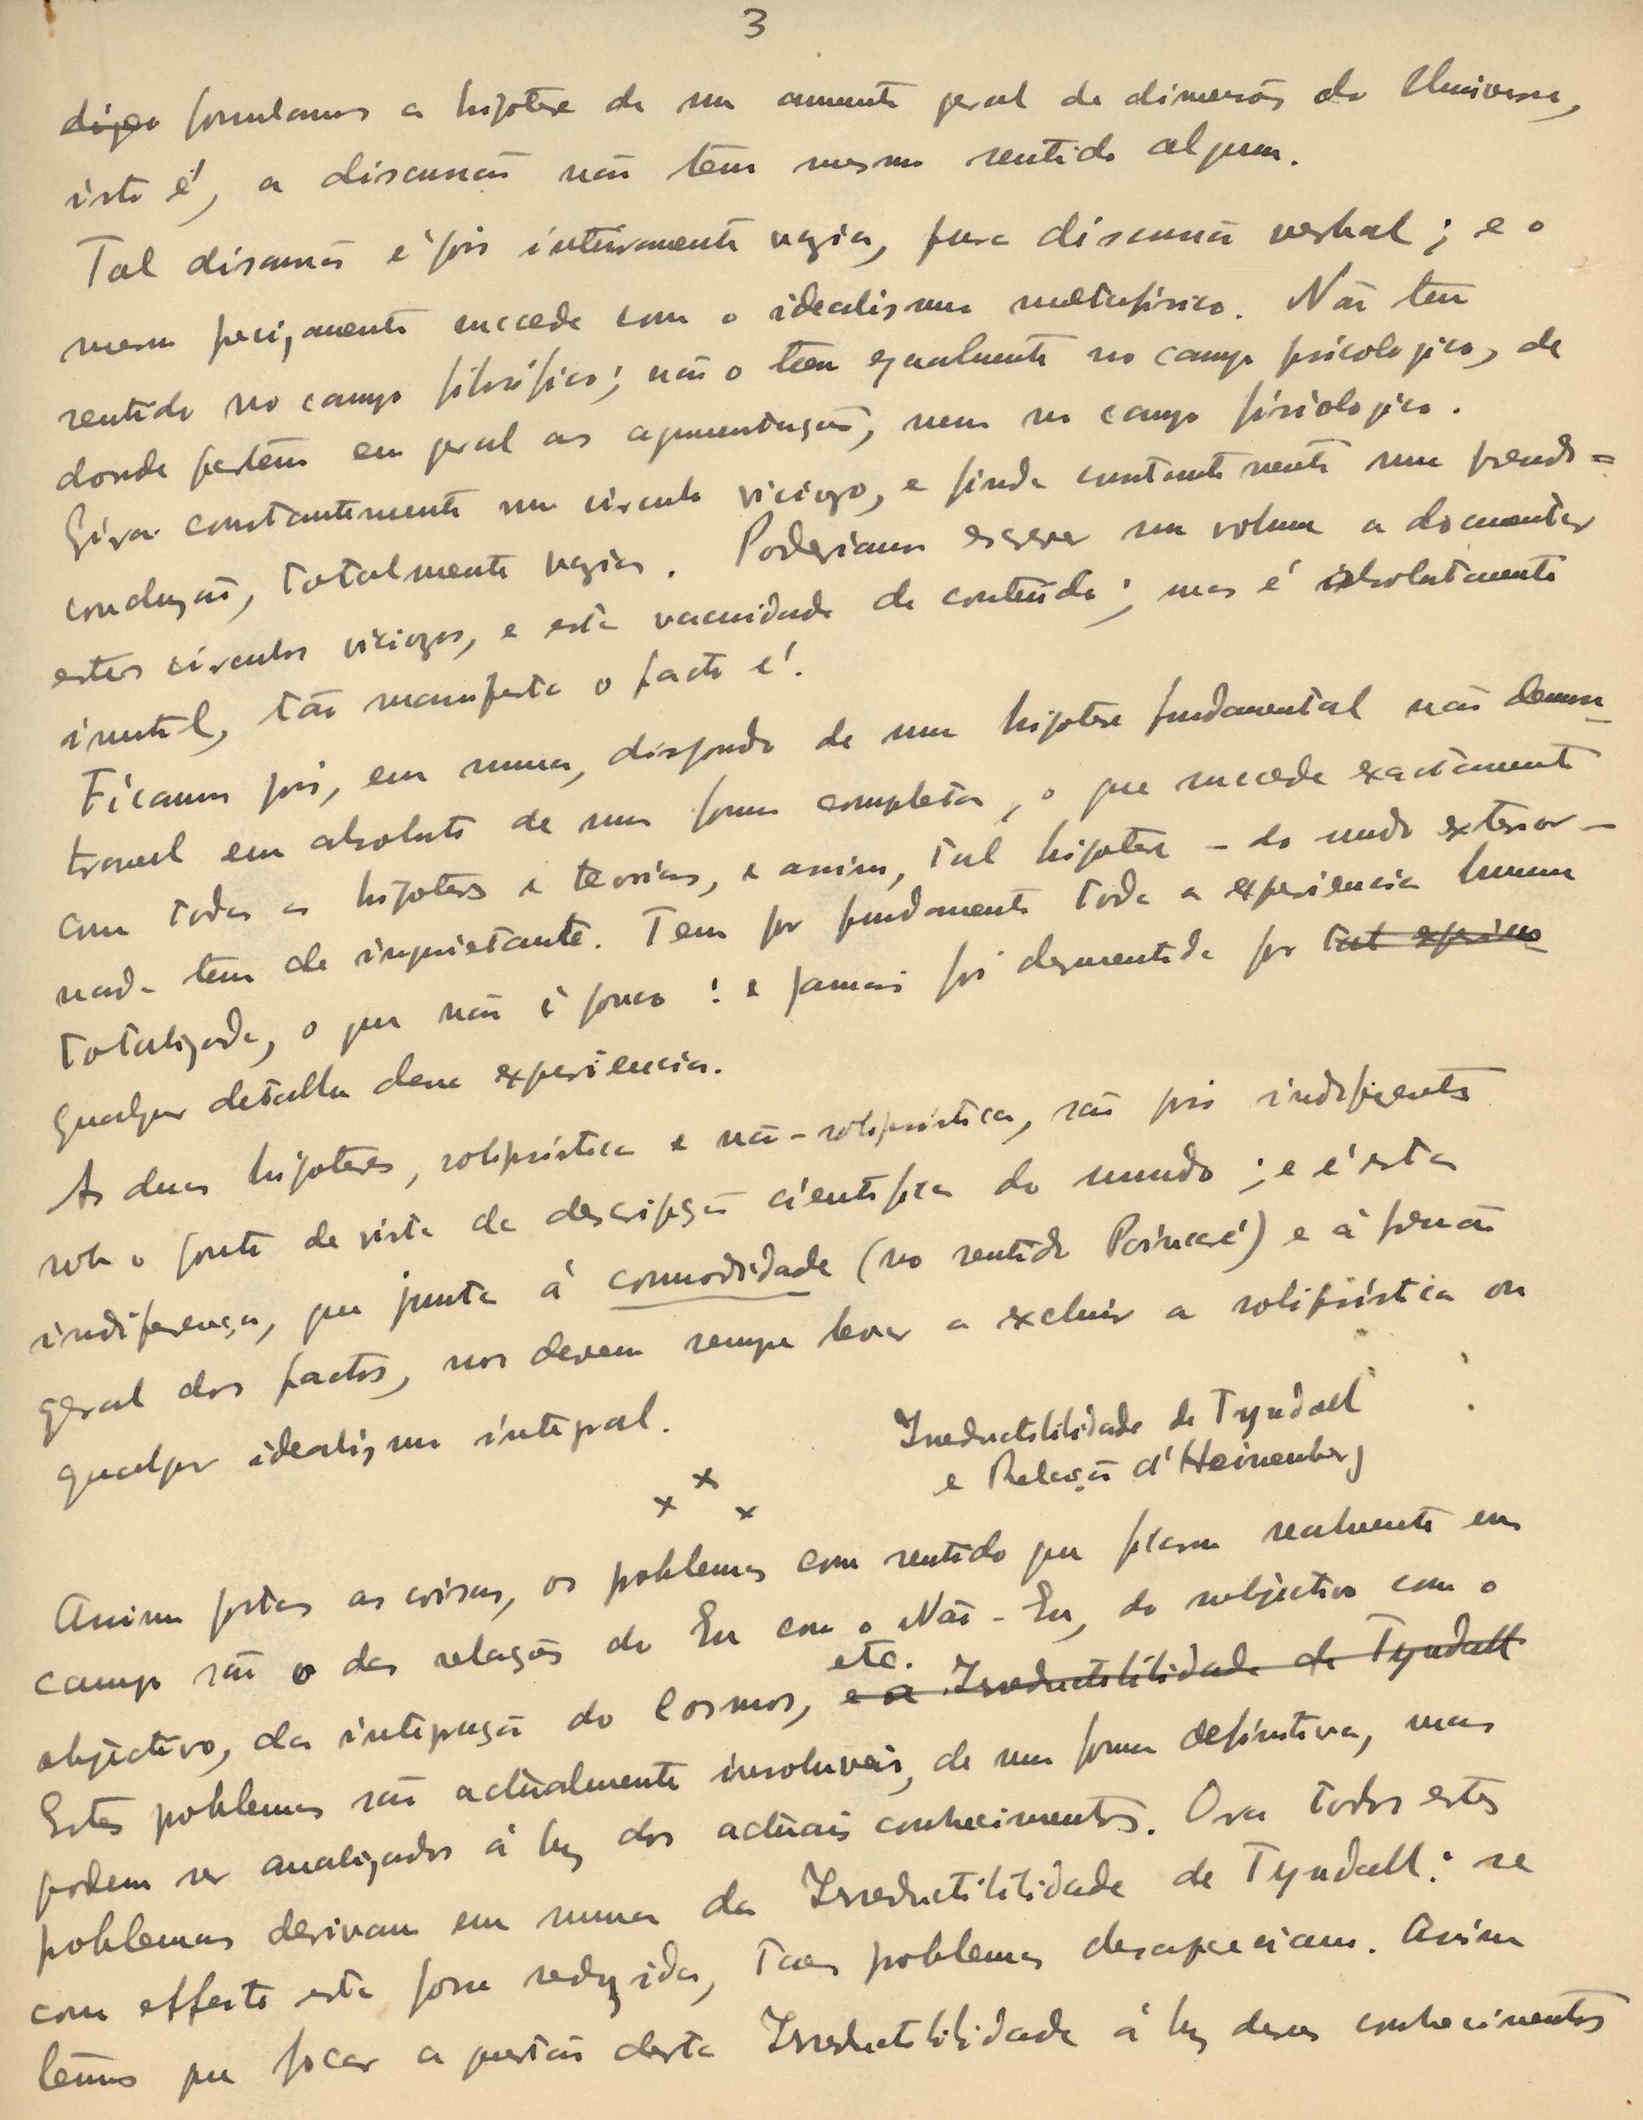 3
digo formulamos a hipotese de um aumento geral de dimensões do Universo,
isto é, a discussão não têm mesmo sentido algum.
Tal discussão é pois inteiramente vazia, pura discussão verbal; e o
mesmo precizamente succede com o idealismo metafisico. Não tem
sentido no campo filosófico; não o tem egualmente no campo psicologico, de
donde partem em geral as argumentações, nem no campo fisiologico.
Gira constantemente num circulo viciozo, e finda constantemente num pseudo=
conclusão, totalmente vazia. Poderiamos escrever um volume a documentar
estes circulos viciozos, e esta vacuidade de conteúdo; mas é absolutamente
inutil, tão manifesto o facto é!
Ficamos pois, em suma, dispondo de uma hipotese fundamental não demons_
travel em absoluto de uma forma completa, o que succede exactamente
com todas as hipoteses e teorias, e assim, tal hipotese – do mundo exterior –
nada tem de inquietante. Tem por fundamento toda a experiencia humana
totalizada, o que não é pouco! e jamais foi desmentida por
qualquer detalhe dessa experiencia.
As duas hipoteses, solipsística e não-solipsística, são pois indiferentes
sob o ponto de vista da descripção cientifica do mundo; e é esta
indiferença, que junta á commodidade (no sentido Poincaré) e á pressão
geral dos factos, nos devem sempre levar a excluir a solipsística ou
qualquer idealismo integral.
Irreductibilidade de Tyndall
e Relação d'Heisenberg
x x x
Assim postas as coisas, os problemas com sentido que ficam realmente em
campo são o das relações do Eu com o Não-Eu, do subjectivo com o
objectivo, da integração do Cosmos, etc. e a Irreductibilidade de Tyndall
Estes problemas são actùalmente insoluveis, de uma forma definitiva, mas
podem ser analizados á luz dos actùais conhecimentos. Ora todos estes
problemas derivam em suma da Irreductibilidade de Tyndall: se
com effeito esta fosse reduzida, taes problemas desapareciam. Assim
temos que focar a questão desta Irreductibilidade á luz desses conhecimentos